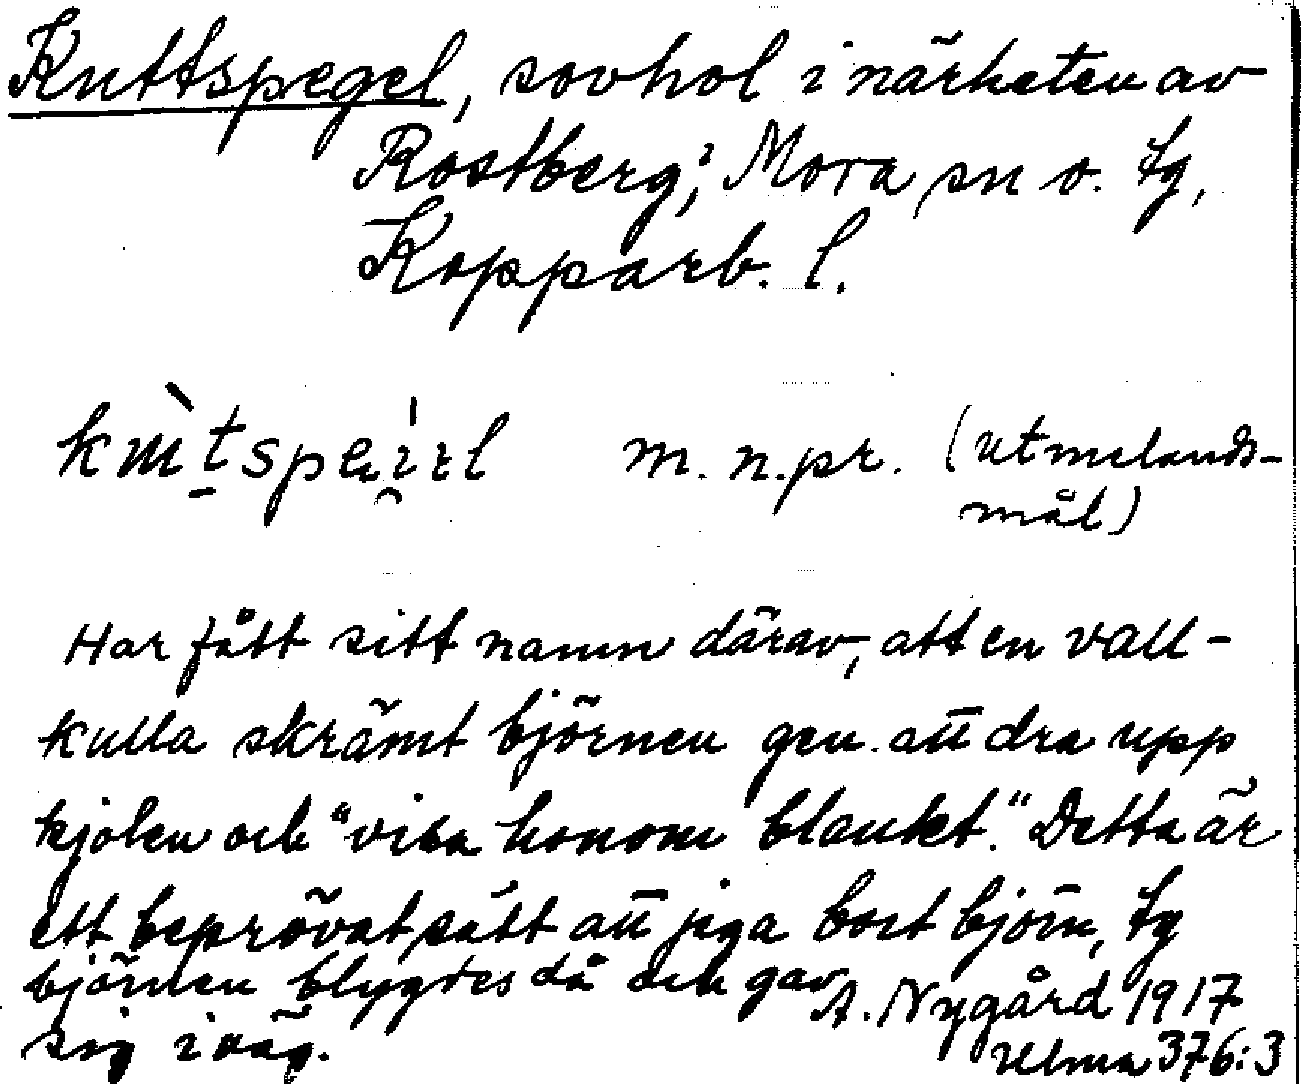 Knttspegel, sovhol i närheten av
Rostberg; i Mora sn o. tg,
Kopparb. l.
m. n.pr. (Utmelands-
mål)
Har fått sitt namn därav, att en vall-
kulla skrämt björnen gen. att dra upp
kjolen och "visa honom blanket." Detta är
ett beprövat sätt att jaga bort björn, ty
björnen blygdes då och gav
sig iväg.
A. Nygård 1917
Ulma 376:3